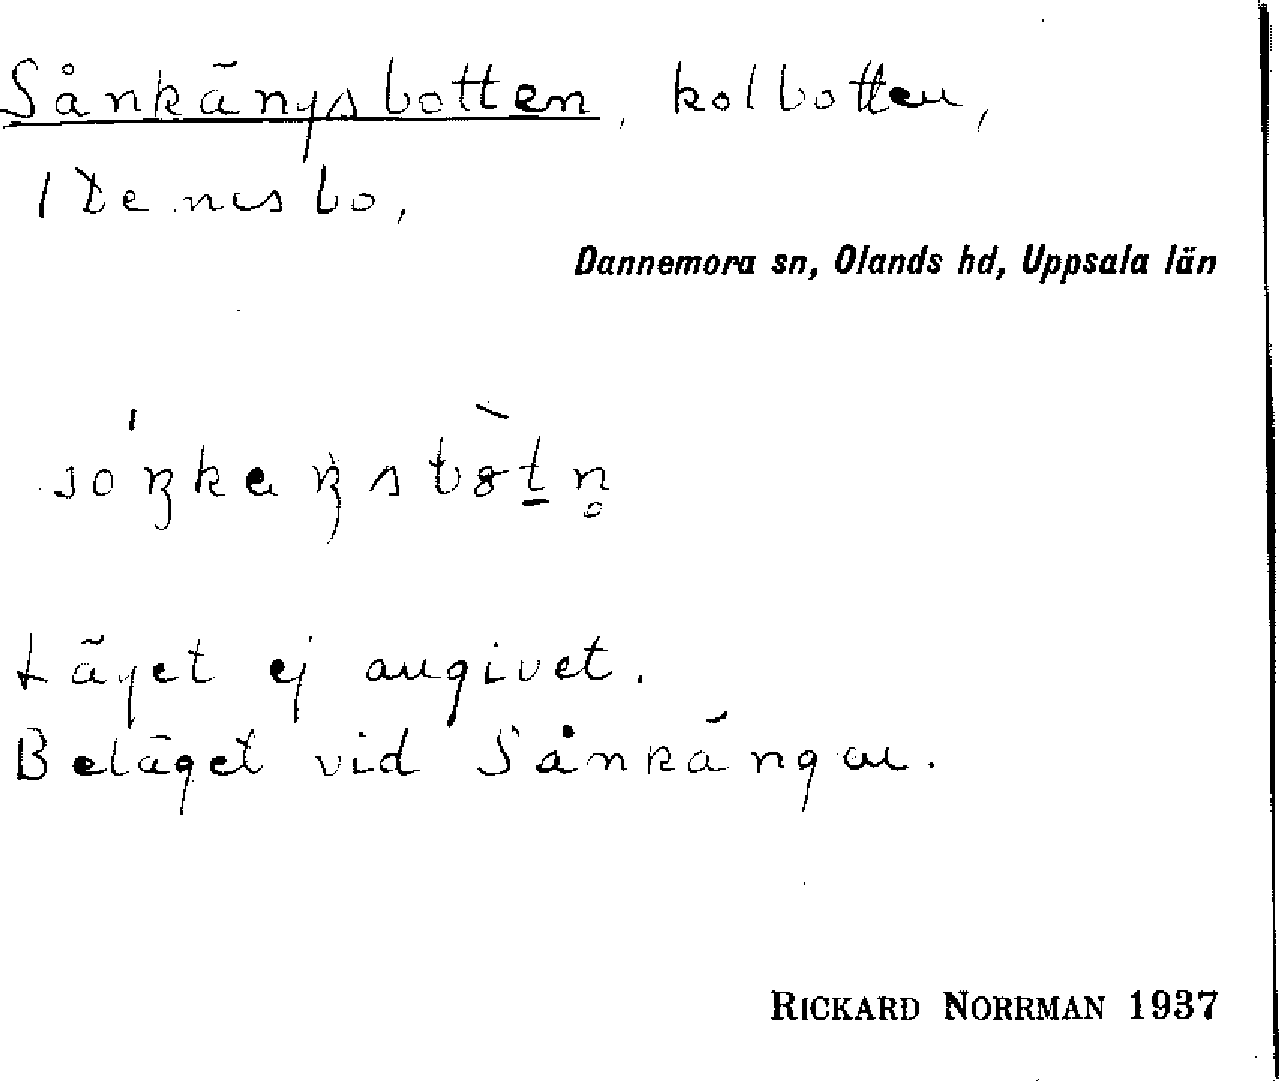 Sånkängsbotten, kolbotten,
1 Dennsbo,
Dannemora sn, Olands hd, Uppsala län
Läget ej angivet.
Beläget vid Sånkängar.
RICKARD NORRMAN 1937